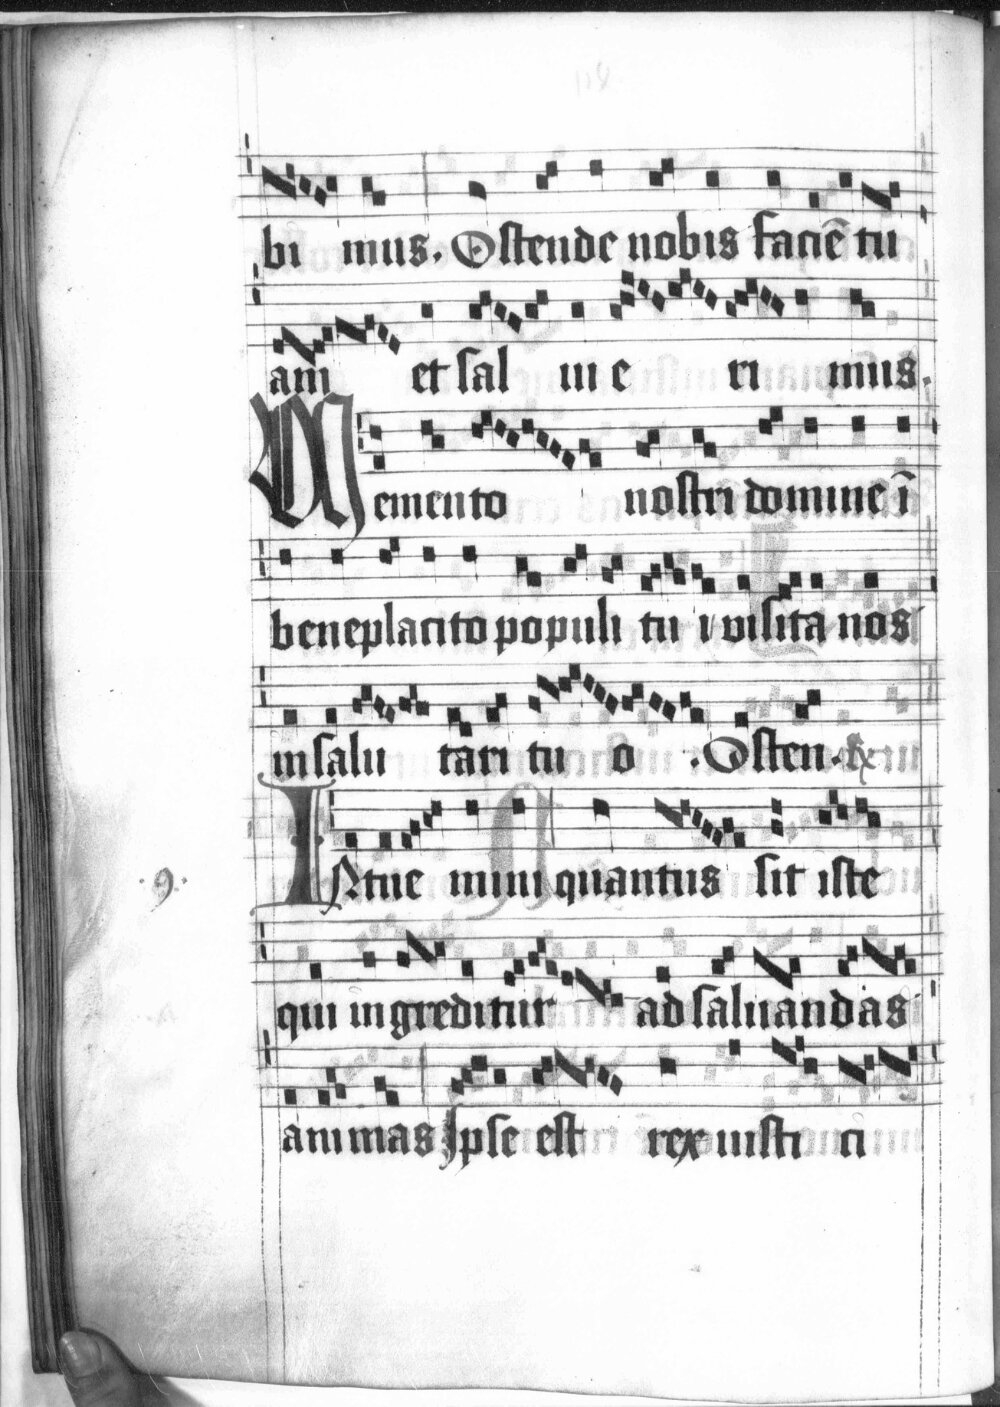 bi mus. Ostende nobis faciē tu
am et sal ui e ri mus.
Memento nostri domine ī
beneplacito populi tu i visita nos
in salu tari tu o .Osten.
.9. INtue mini quantus sit iste
qui ingreditur ad saluandas
animas Ipse est rex iusti ci